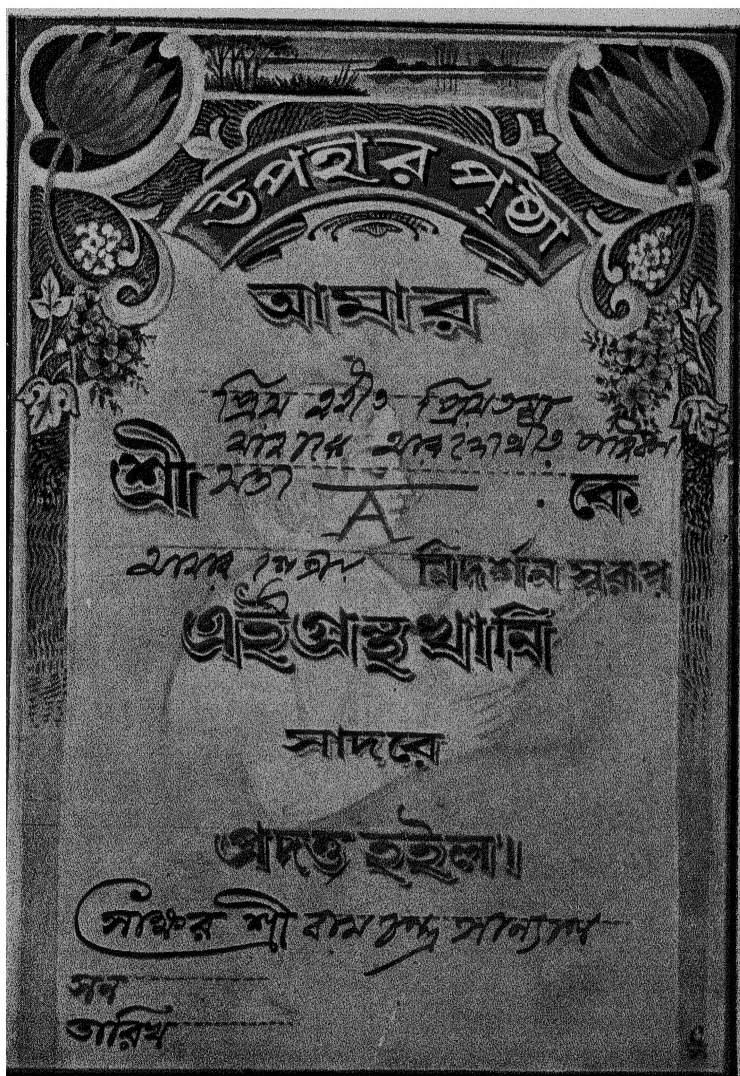 উপহার পৃষ্ঠা
আমার
প্রিয়তমা
শ্রী মতী A কে
আমার নিদর্শন স্বরূপ
এই গ্রন্থ খানি
সাদরে
প্রদত্ত হইল।
সাক্ষর শ্রী রাম চন্দ্র সান্যাল
সন
তারিখ